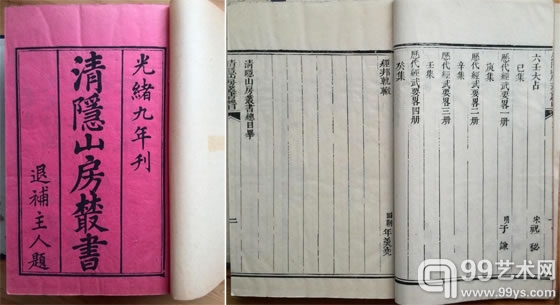 光緒九年刊
清隱山房叢書
退補主人題
六壬大占 宋 祝秘
己集
歷代經武要略一册 明 于謙
庚集
歷代經武要略二册
辛集
歷代經武要略三册
壬集
歷代經武要略四册
癸集
經邦軌轍 國朝 年羹堯
清隱山房叢書總目畢
二
99艺术网
www.99ys.com